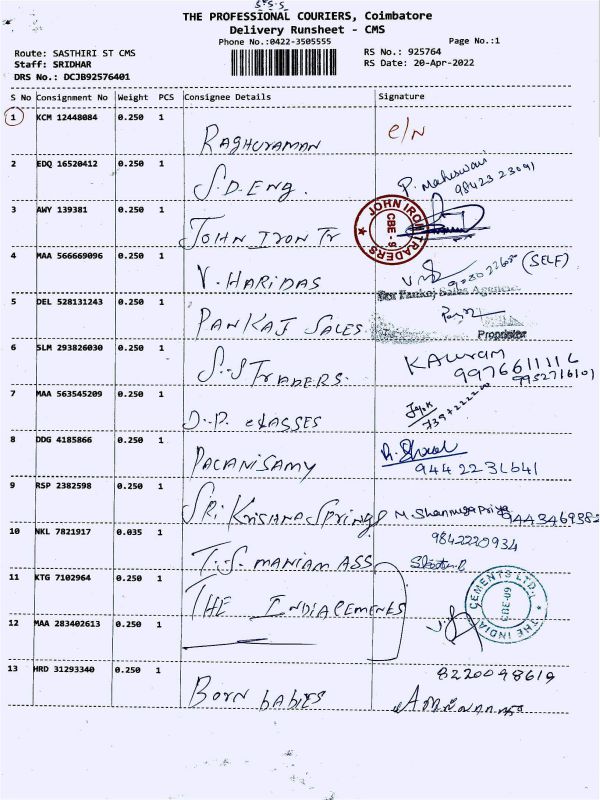 THE PROFESSIONAL COURIERS, Coimbatore
Delivery Runsheet - CMS
Phone No.:0422-3505555
Page No.:1
Route: SASTHIRI ST CMS
RS No.: 925764
Staff: SRIDHAR
RS Date: 20-Apr-2022
DRS No.: DCJB92576401
S No Consignment No Weight PCS Consignee Details Signature
1 KCM 12448084 0.250 1 RAGHURAMAN e/N
2 EDQ 16520412 0.250 1 S.D.ENG. P. Maheswari
98423 23091
3 AWY 139381 0.250 1 JOHN IRON Tr
JOHN IRON TRADERS CBE - 9
4 MAA 566669096 0.250 1 V. HARIDAS (SELF)
For Pankaj Sales Agencies
5 DEL 528131243 0.250 1 PANKAJ SALES
Proprietor
6 SLM 293826030 0.250 1 S.S TRADERS.
9952716101
7 MAA 563545209 0.250 1 D.P. GLASSES
8 DDG 4185866 0.250 1 PALANISAMY
94422 31641
9 RSP 2382598 0.250 1 SRI KRISHNA SPRINGS M. Shanmuga Priya 9443469382
10 NKL 7821917 0.035 1 T.S. MANIAM ASS 9842220934
11 KTG 7102964 0.250 1 THE INDIACEMENTS
THE INDIA CEMENTS LTD. CBE-09
12 MAA 283402613 0.250 1
13 HRD 31293340 0.250 1 BORN babies 8220098619